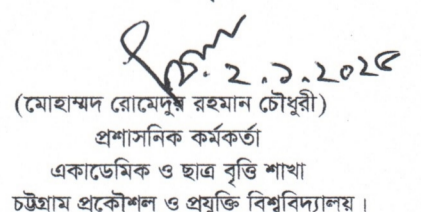 ২.১.২০২৫
(মোহাম্মদ রোমেদুর রহমান চৌধুরী)
প্রশাসনিক কর্মকর্তা
একাডেমিক ও ছাত্র বৃত্তি শাখা
চট্টগ্রাম প্রকৌশল ও প্রযুক্তি বিশ্ববিদ্যালয়।